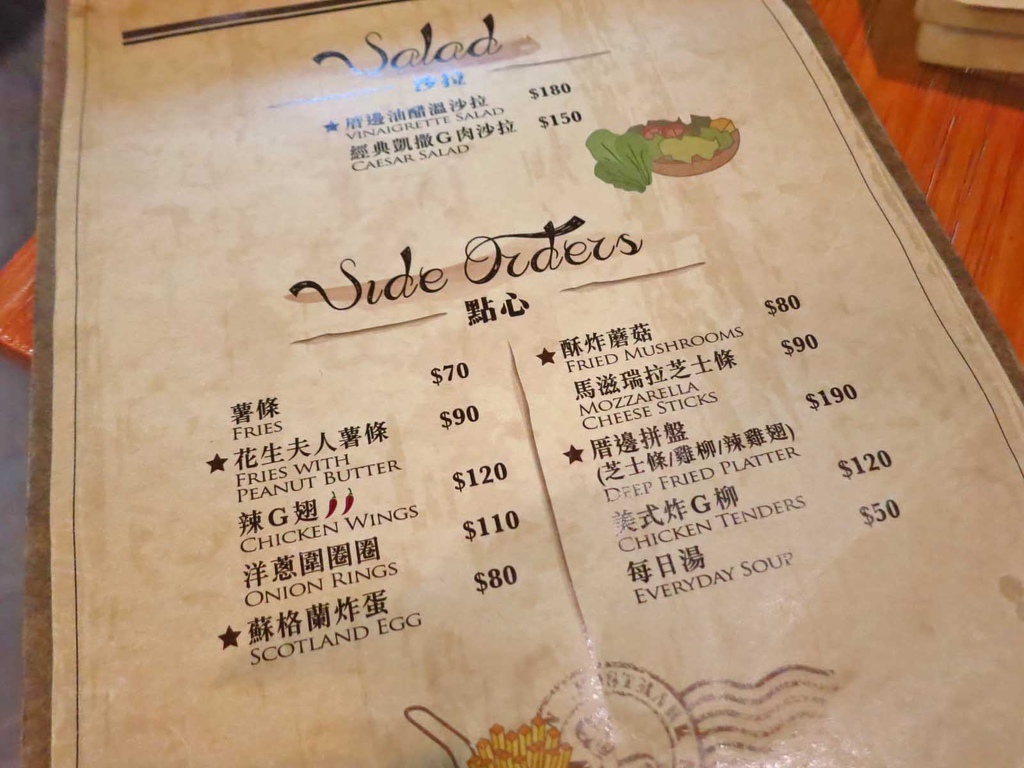 Salad
沙拉
★厝邊油醋溫沙拉 $180
VINAIGRETTE SALAD
經典凱撒G肉沙拉 $150
CAESAR SALAD
Side Orders
點心
$70
薯條
FRIES
$90
★花生夫人薯條
FRIES WITH
PEANUT BUTTER
$120
辣G翅
CHICKEN WINGS
$110
洋蔥圍圈圈
ONION RINGS
$80
★蘇格蘭炸蛋
SCOTLAND EGG
$80
★酥炸蘑菇
FRIED MUSHROOMS
$90
馬滋瑞拉芝士條
MOZZARELLA
CHEESE STICKS
$190
★厝邊拼盤
(芝士條/雞柳/辣雞翅)
DEEP FRIED PLATTER
$120
美式炸G柳
CHICKEN TENDERS
$50
每日湯
EVERYDAY SOUP